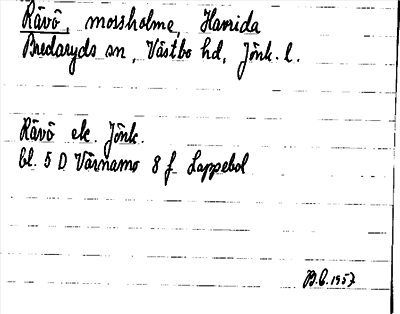 Rävö, mossholme, Hamida
Bredaryds sn, Västbo hd, Jönk. l.
Rävö ek. Jönk.
bl. 5 D Värnamo 8 f Lappebol
B.E. 1957